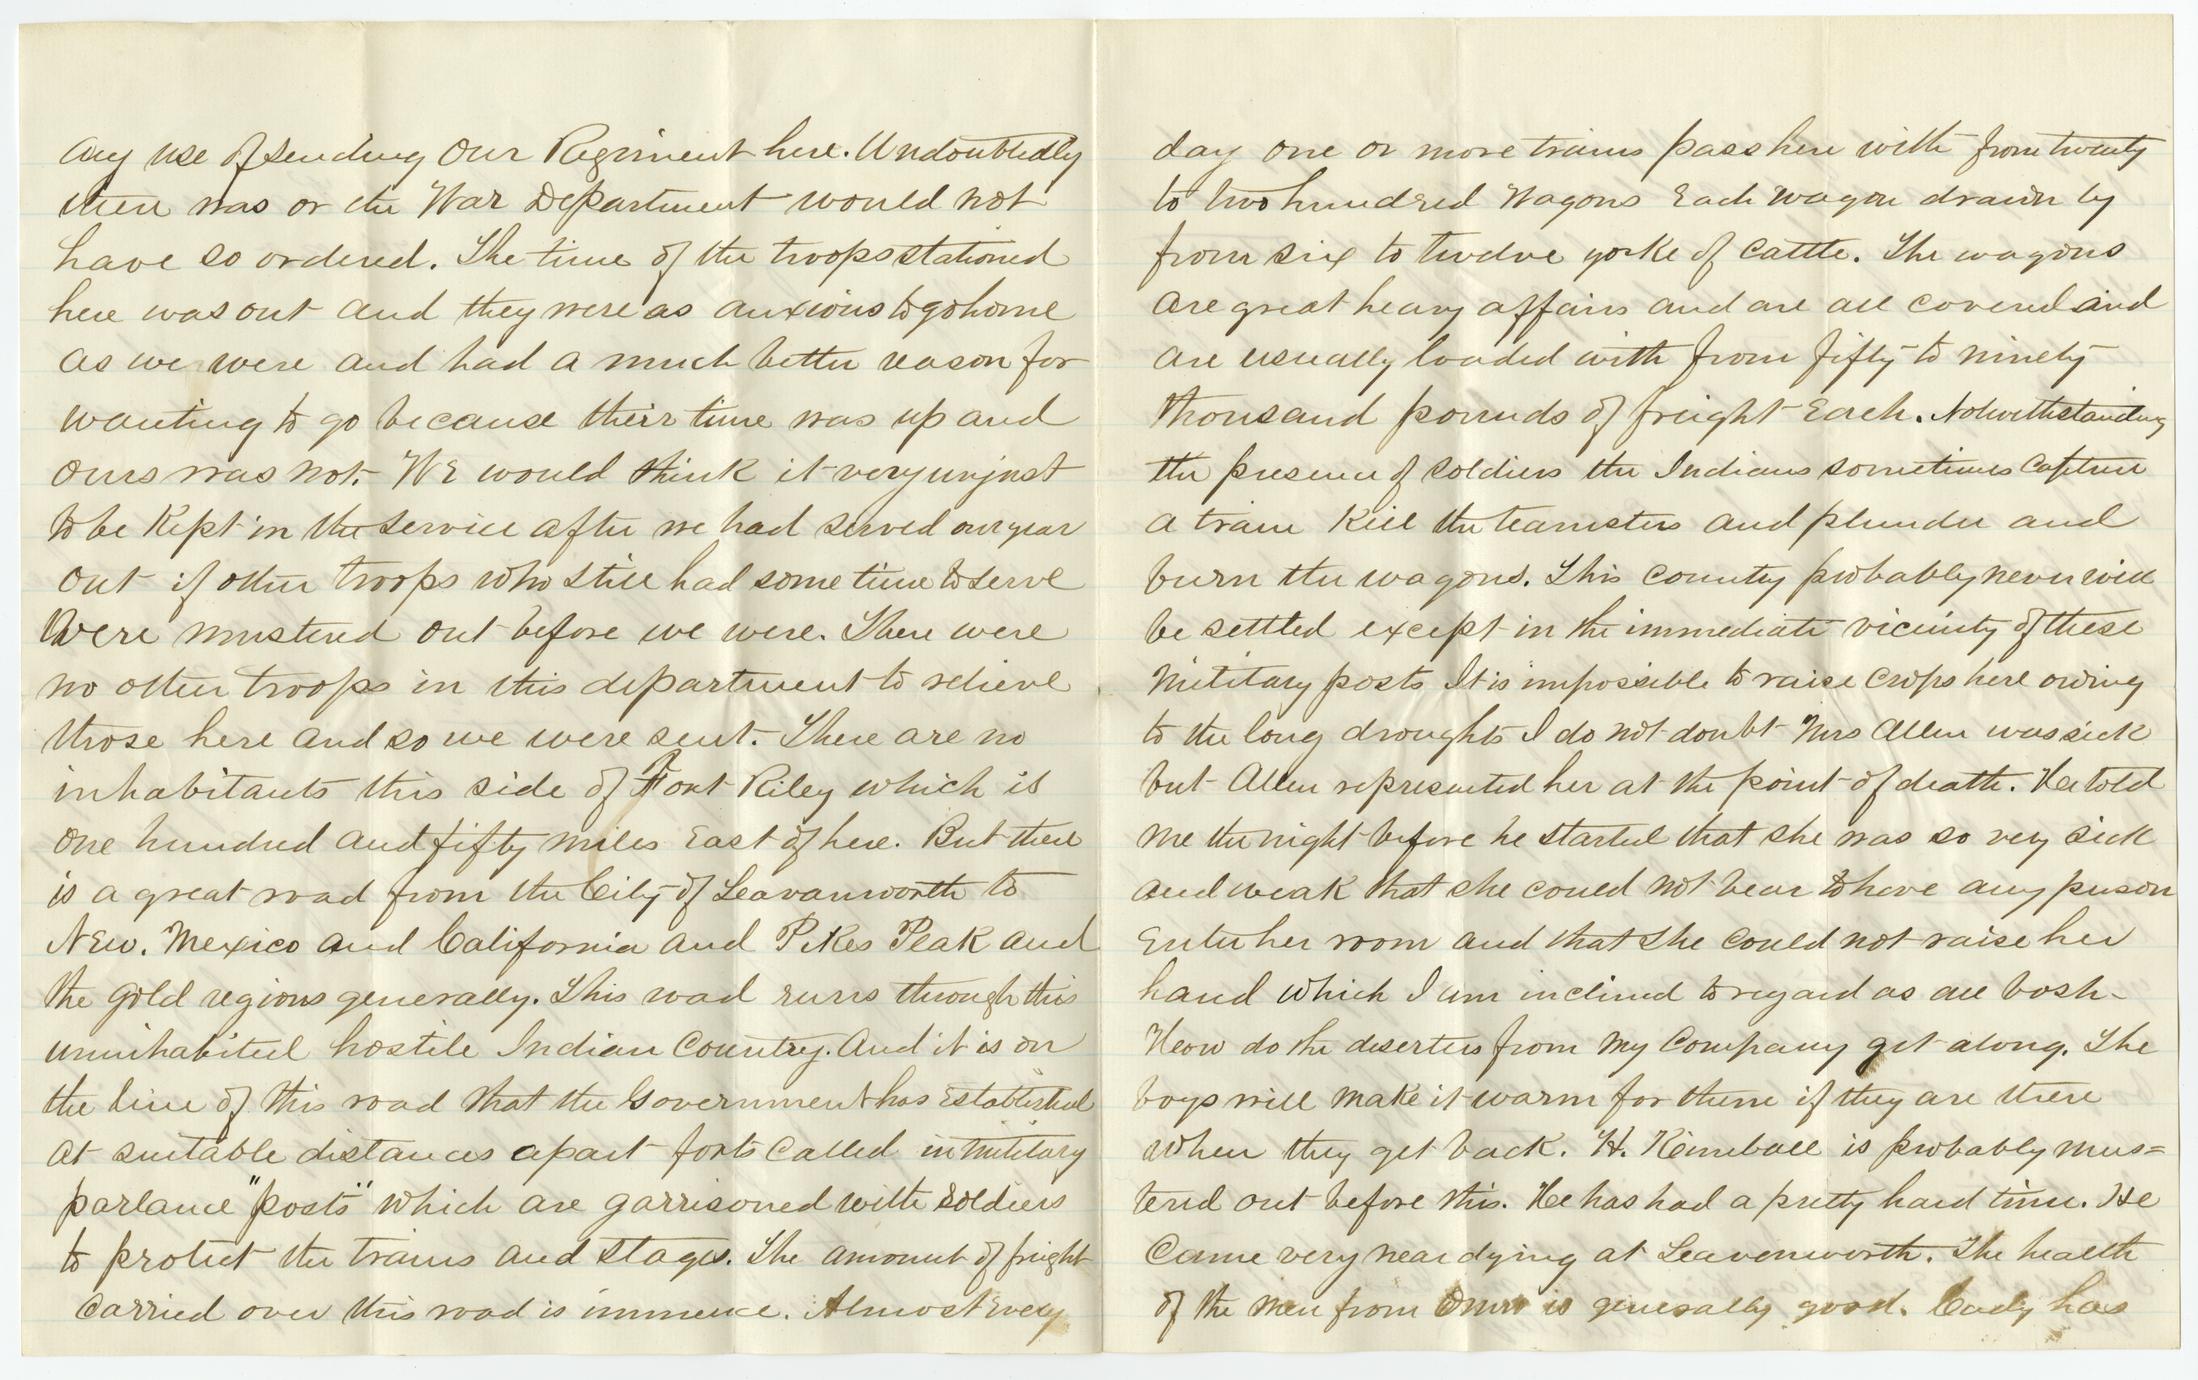 any use of sending our Regiment here. Undoubtedly
there was or the War Department would not
have so ordered. The time of the troops stationed
here was out and they were as anxious to go home
as we were and had a much better reason for
wanting to go because their time was up and
ours was not. We would think it very unjust
to be Kept in the service after we had served our year
out if other troops who still had some time to serve
were mustered out before we were. There were
no other troops in this department to relieve
those here and so we were sent. There are no
inhabitants this side of Fort Riley which is
one hundred and fifty miles East of here. But there
is a great road from the City of Leavanworth to
New. Mexico and California and Pikes Peak and
the gold regions generally. This road runs through this
uninhabited hostile Indian Country. And it is on
the line of this road that the Government has Established
at suitable distances apart forts called in military
parlance "posts" which are garrisoned with soldiers
to protect the trains and stages. The amount of freight
carried over this road is immence. Almost Every
day one or more trains pass here with from twenty
to two hundred Wagons Each wagon drawn by
from six to twelve yorke of cattle. The wagons
are great heavy affairs and are all covered and
are usually loaded with from fifty to ninety
thousand pounds of freight Each. Notwithstanding
the presence of soldiers the Indians sometimes capture
a train Kill the teamsters and plunder and
burn the wagons. This country probably never will
be settled except in the immediate vicinity of these
Military posts It is impossible to raise crops here owing
to the long droughts I do not doubt Mrs Allen was sick
but Allen represented her at the point of death. He told
me the night before he started that she was so very sick
and weak that she could not bear to have any person
Enter her room and that she could not raise her
hand which I am inclined to regard as all bosh-
How do the deserters from my Company get along. The
boys will make it warm for them if they are there
when they get back. H. Kimball is probably mus=
tered out before this. He has had a pretty hard time. He
came very near dying at Leavenworth. The health
of the men from is generally good. Cady has